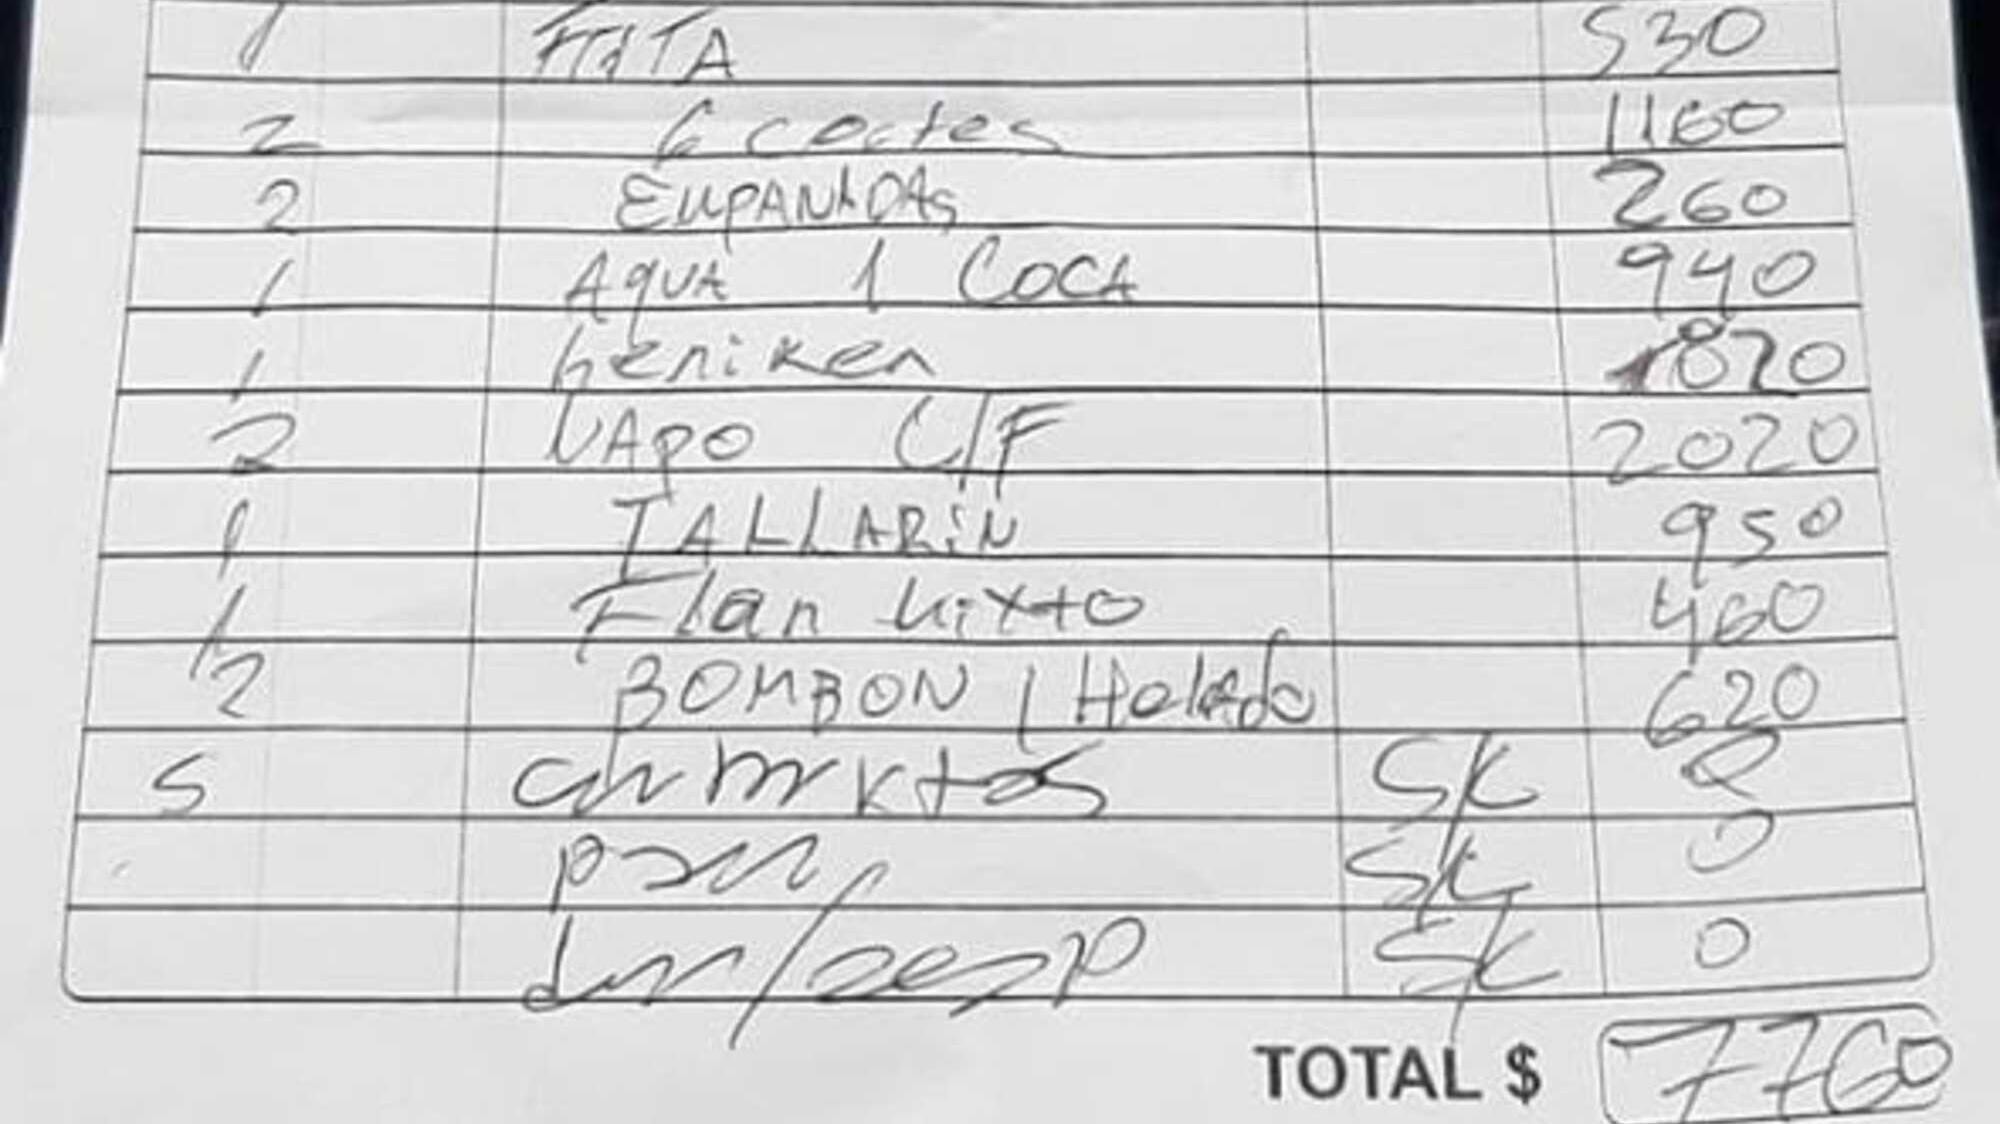 1 530
2 6 cortes 1160
2 EMPANADAS 260
1 AqUA 1 COCA 940
1 heniken 820
2 VAPO C/F 2020
1 TALLARiN 950
1 Flan Mixto 460
1/2 BOMBON 1 Helado 620
5 S/C
S/C 0
S/C 0
TOTAL $ 7760